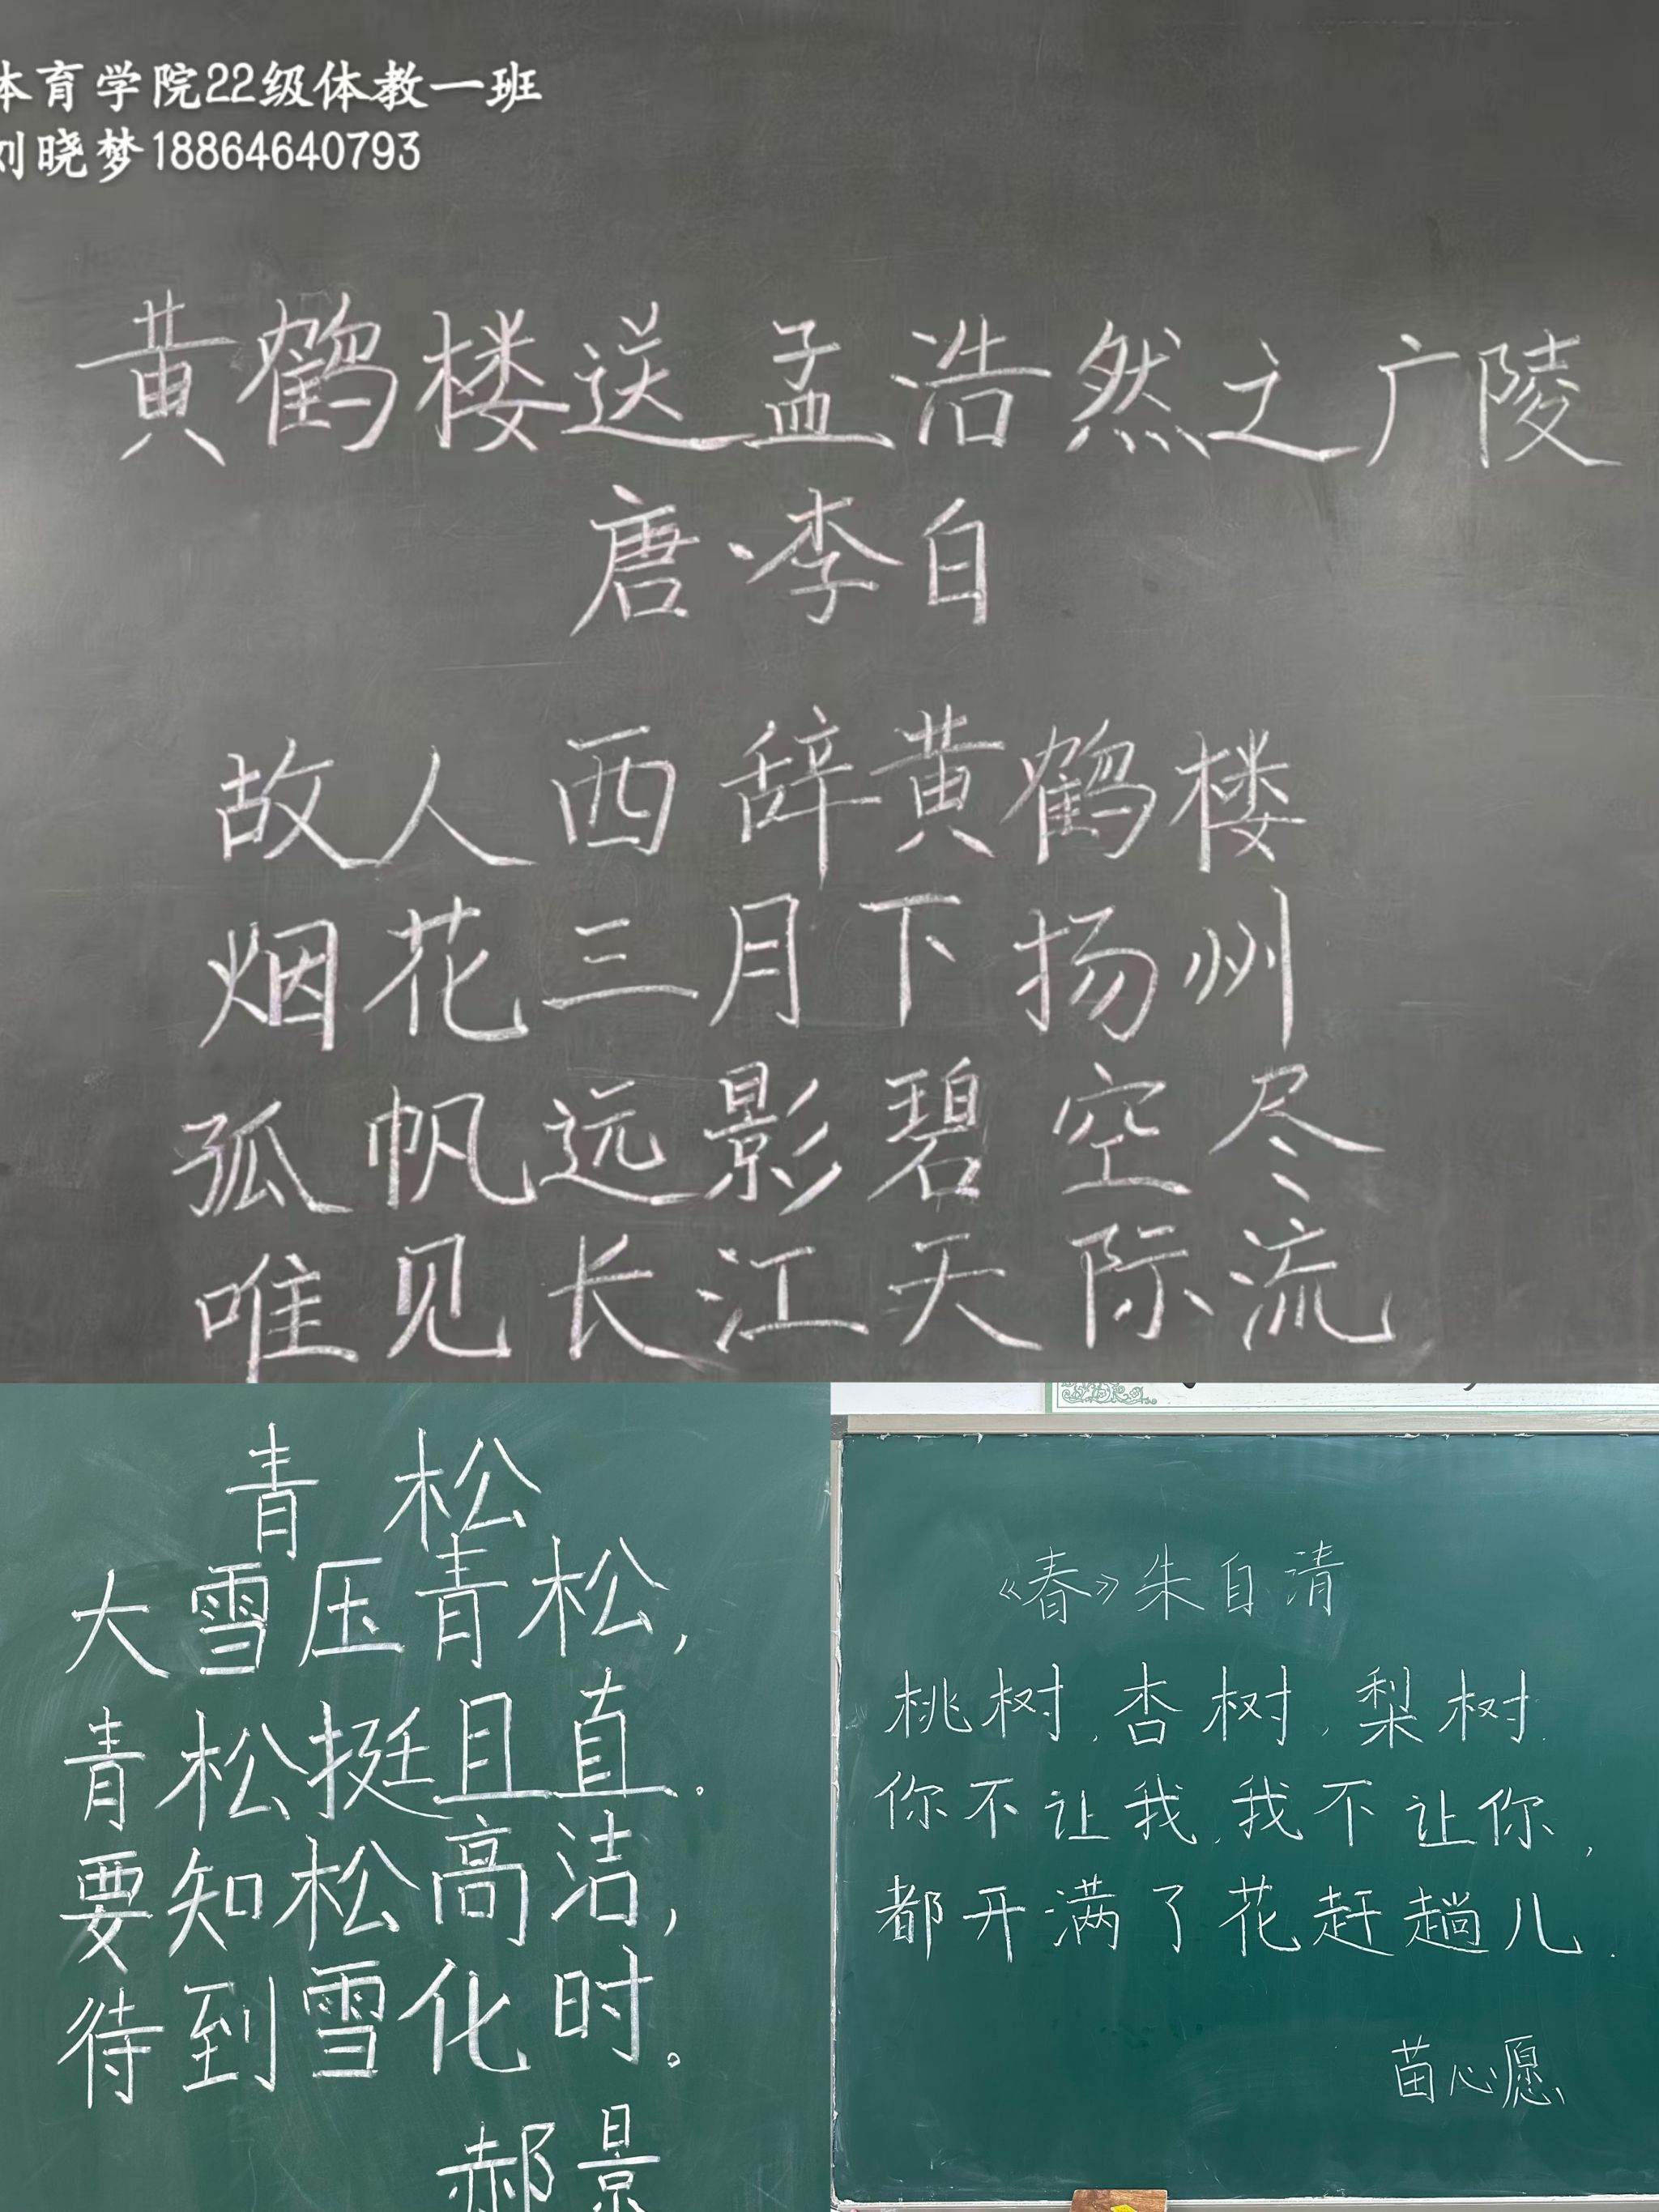 体育学院22级体教一班
刘晓梦18864640793
黄鹤楼送孟浩然之广陵
唐·李白
故人西辞黄鹤楼
烟花三月下扬州
孤帆远影碧空尽
唯见长江天际流
青松
大雪压青松,
青松挺且直。
要知松高洁,
待到雪化时。
郝景
《春》朱自清
桃树,杏树,梨树.
你不让我,我不让你,
都开满了花赶趟儿.
苗心愿